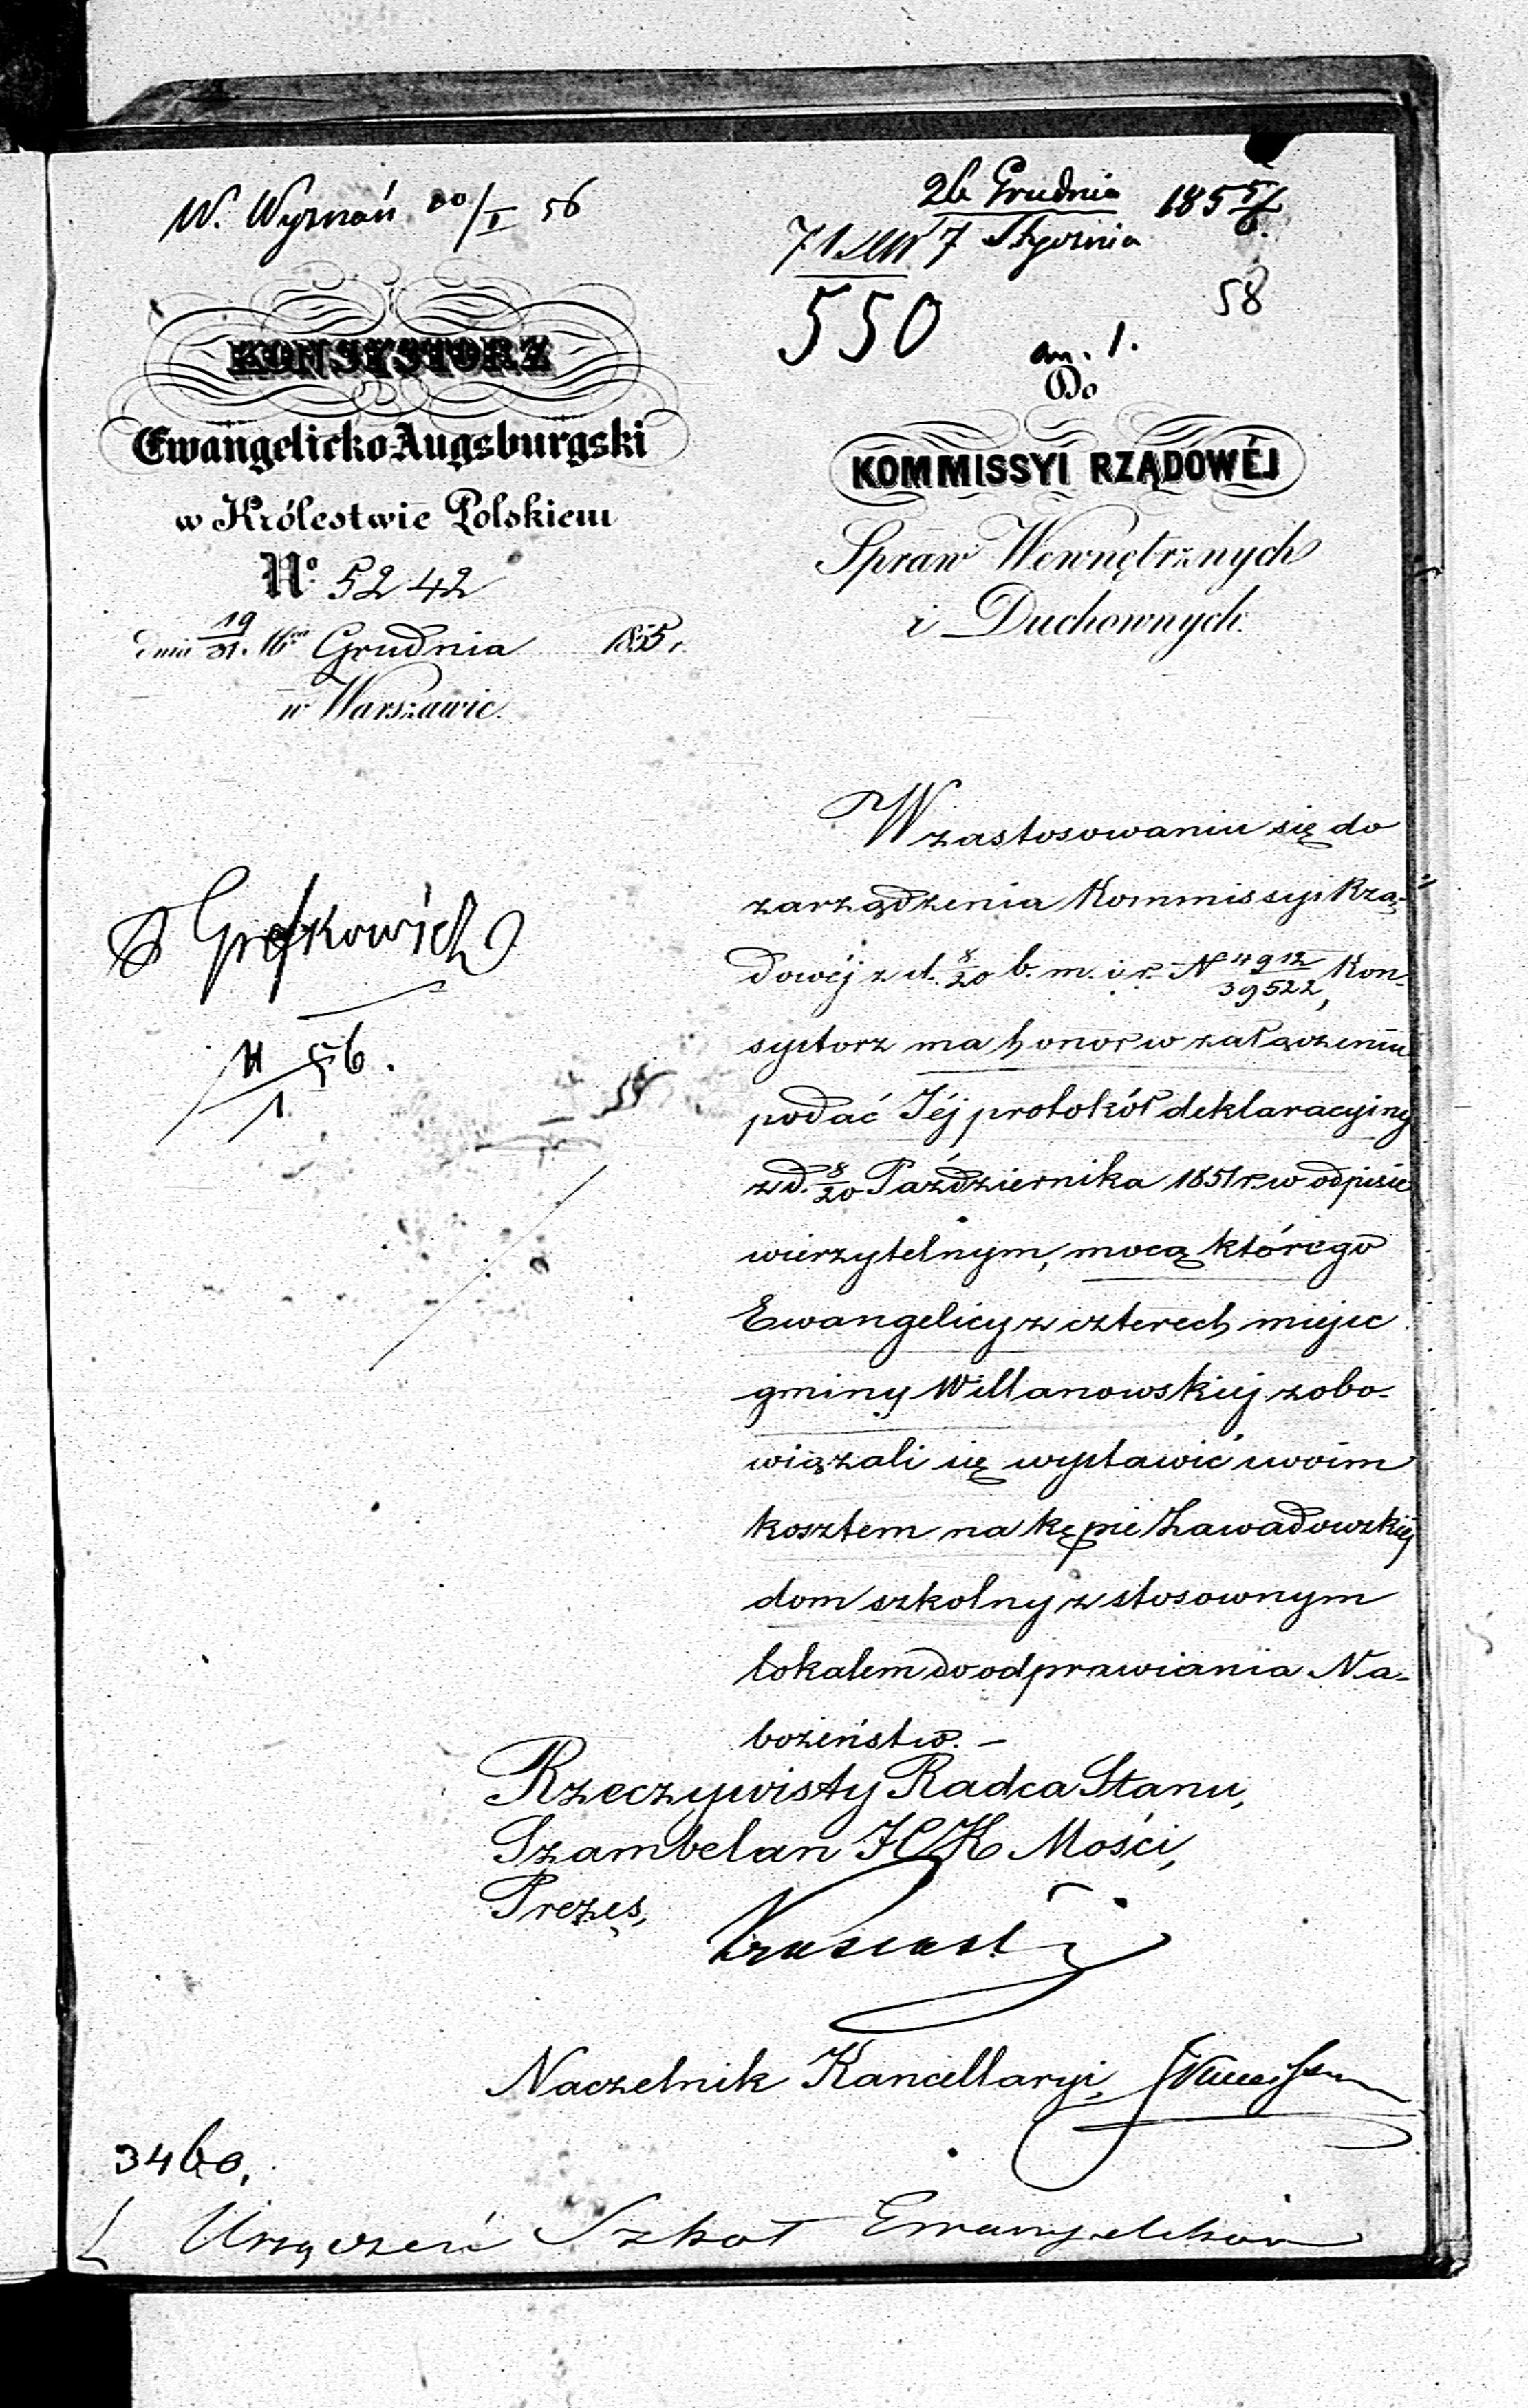 W. Wyznań 10/I 56
26 Grudnia 1855/6.
7 Stycznia
71
550
58
an. 1.
KONSYSTORZ
Ewangelicko Augsburgski
w Królestwie Polskiem
No. 5242
dnia 19/31. 16m Grudnia 1855 r.
w Warszawie.
Do
KOMMISSYI RZĄDOWÉJ
Spraw Wewnętrznych
i Duchownych.
56.
1
W zastosowaniu się do
zarządzenia Kommissyi Rzą-
dowéj z d. 8/20 b. m. i r. N 4912/39522, Kon-
systorz ma honor w załączeniu
podać Jéj protokół deklaracyjny
z d. 8/20 Października 1851 r. w odpisie
wierzytelnym, mocą którego
Ewangelicy z czterech miejsc
gminy Willanowskiej zobo-
wiązali się wystawić swoim
kosztem na kępie Zawadowskiej
dom szkolny z stosownym
lokalem do odprawiania Na-
bożeństw. –
Rzeczywisty Radca Stanu,
Szambelan JCK Mości,
Prezes,
Naczelnik Kancellaryi,
3460.
Urządzeń Szkół Ewangelickich